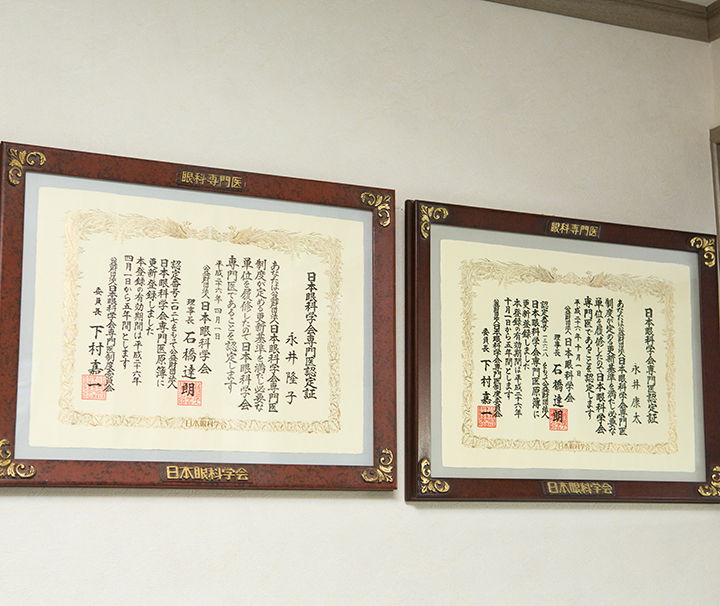 眼科専門医
日本眼科学会専門医認定証
永井 隆子
あなたは公益財団法人日本眼科学会専門医
制度が定める更新基準を満し必要な
単位を履修したので日本眼科学会
専門医であることを認定します
平成二十六年四月一日
公益財団法人日本眼科学会
理事長 石橋達朗
認定番号一〇二七をもって公益財団法人
日本眼科学会専門医原簿に
更新登録しました
本登録の有効期間は平成二十六年
四月一日から五年間とします
公益財団法人日本眼科学会専門医制度委員会
委員長 下村嘉一
日本眼科学会
日本眼科学会
眼科専門医
日本眼科学会専門医認定証
永井 康太
あなたは公益財団法人日本眼科学会専門医
制度が定める更新基準を満し必要な
単位を履修したので日本眼科学会
専門医であることを認定します
平成二十六年十月一日
公益財団法人日本眼科学会
理事長 石橋達朗
日本眼科学会専門医原簿に
更新登録しました
本登録の有効期間は平成二十六年
十月一日から五年間とします
公益財団法人日本眼科学会専門医制度委員会
委員長 下村嘉一
日本眼科学会
日本眼科学会